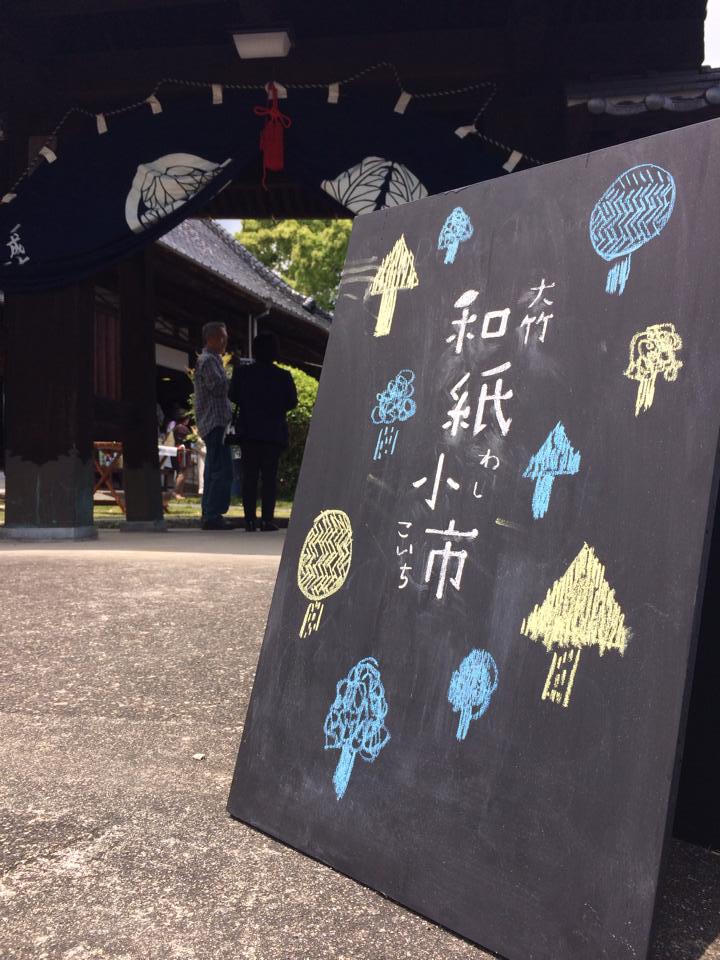 大竹
和紙
わし
小市
こいち